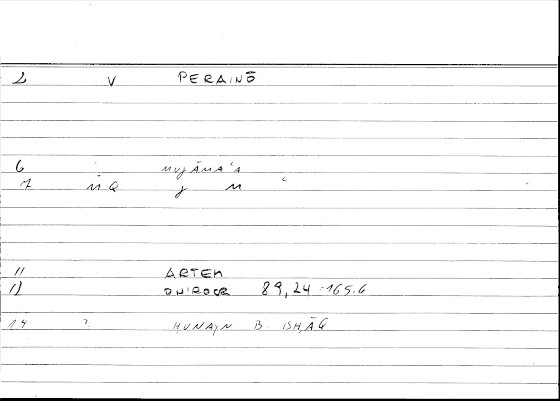 2 V PERAINŌ
6 MUJĀMAʿA
7 MQ J M ʿ
11 ARTEM
12 ONIROCR 89,24 = 165.6
14 ? HUNAYN B. ISHĀQ